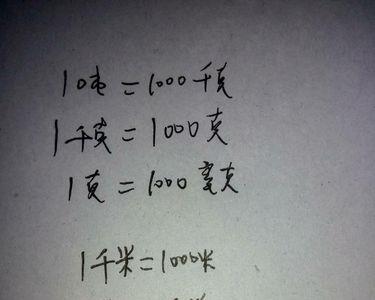 1吨=1000千克
1千克=1000克
1克=1000毫克
1千米=1000米